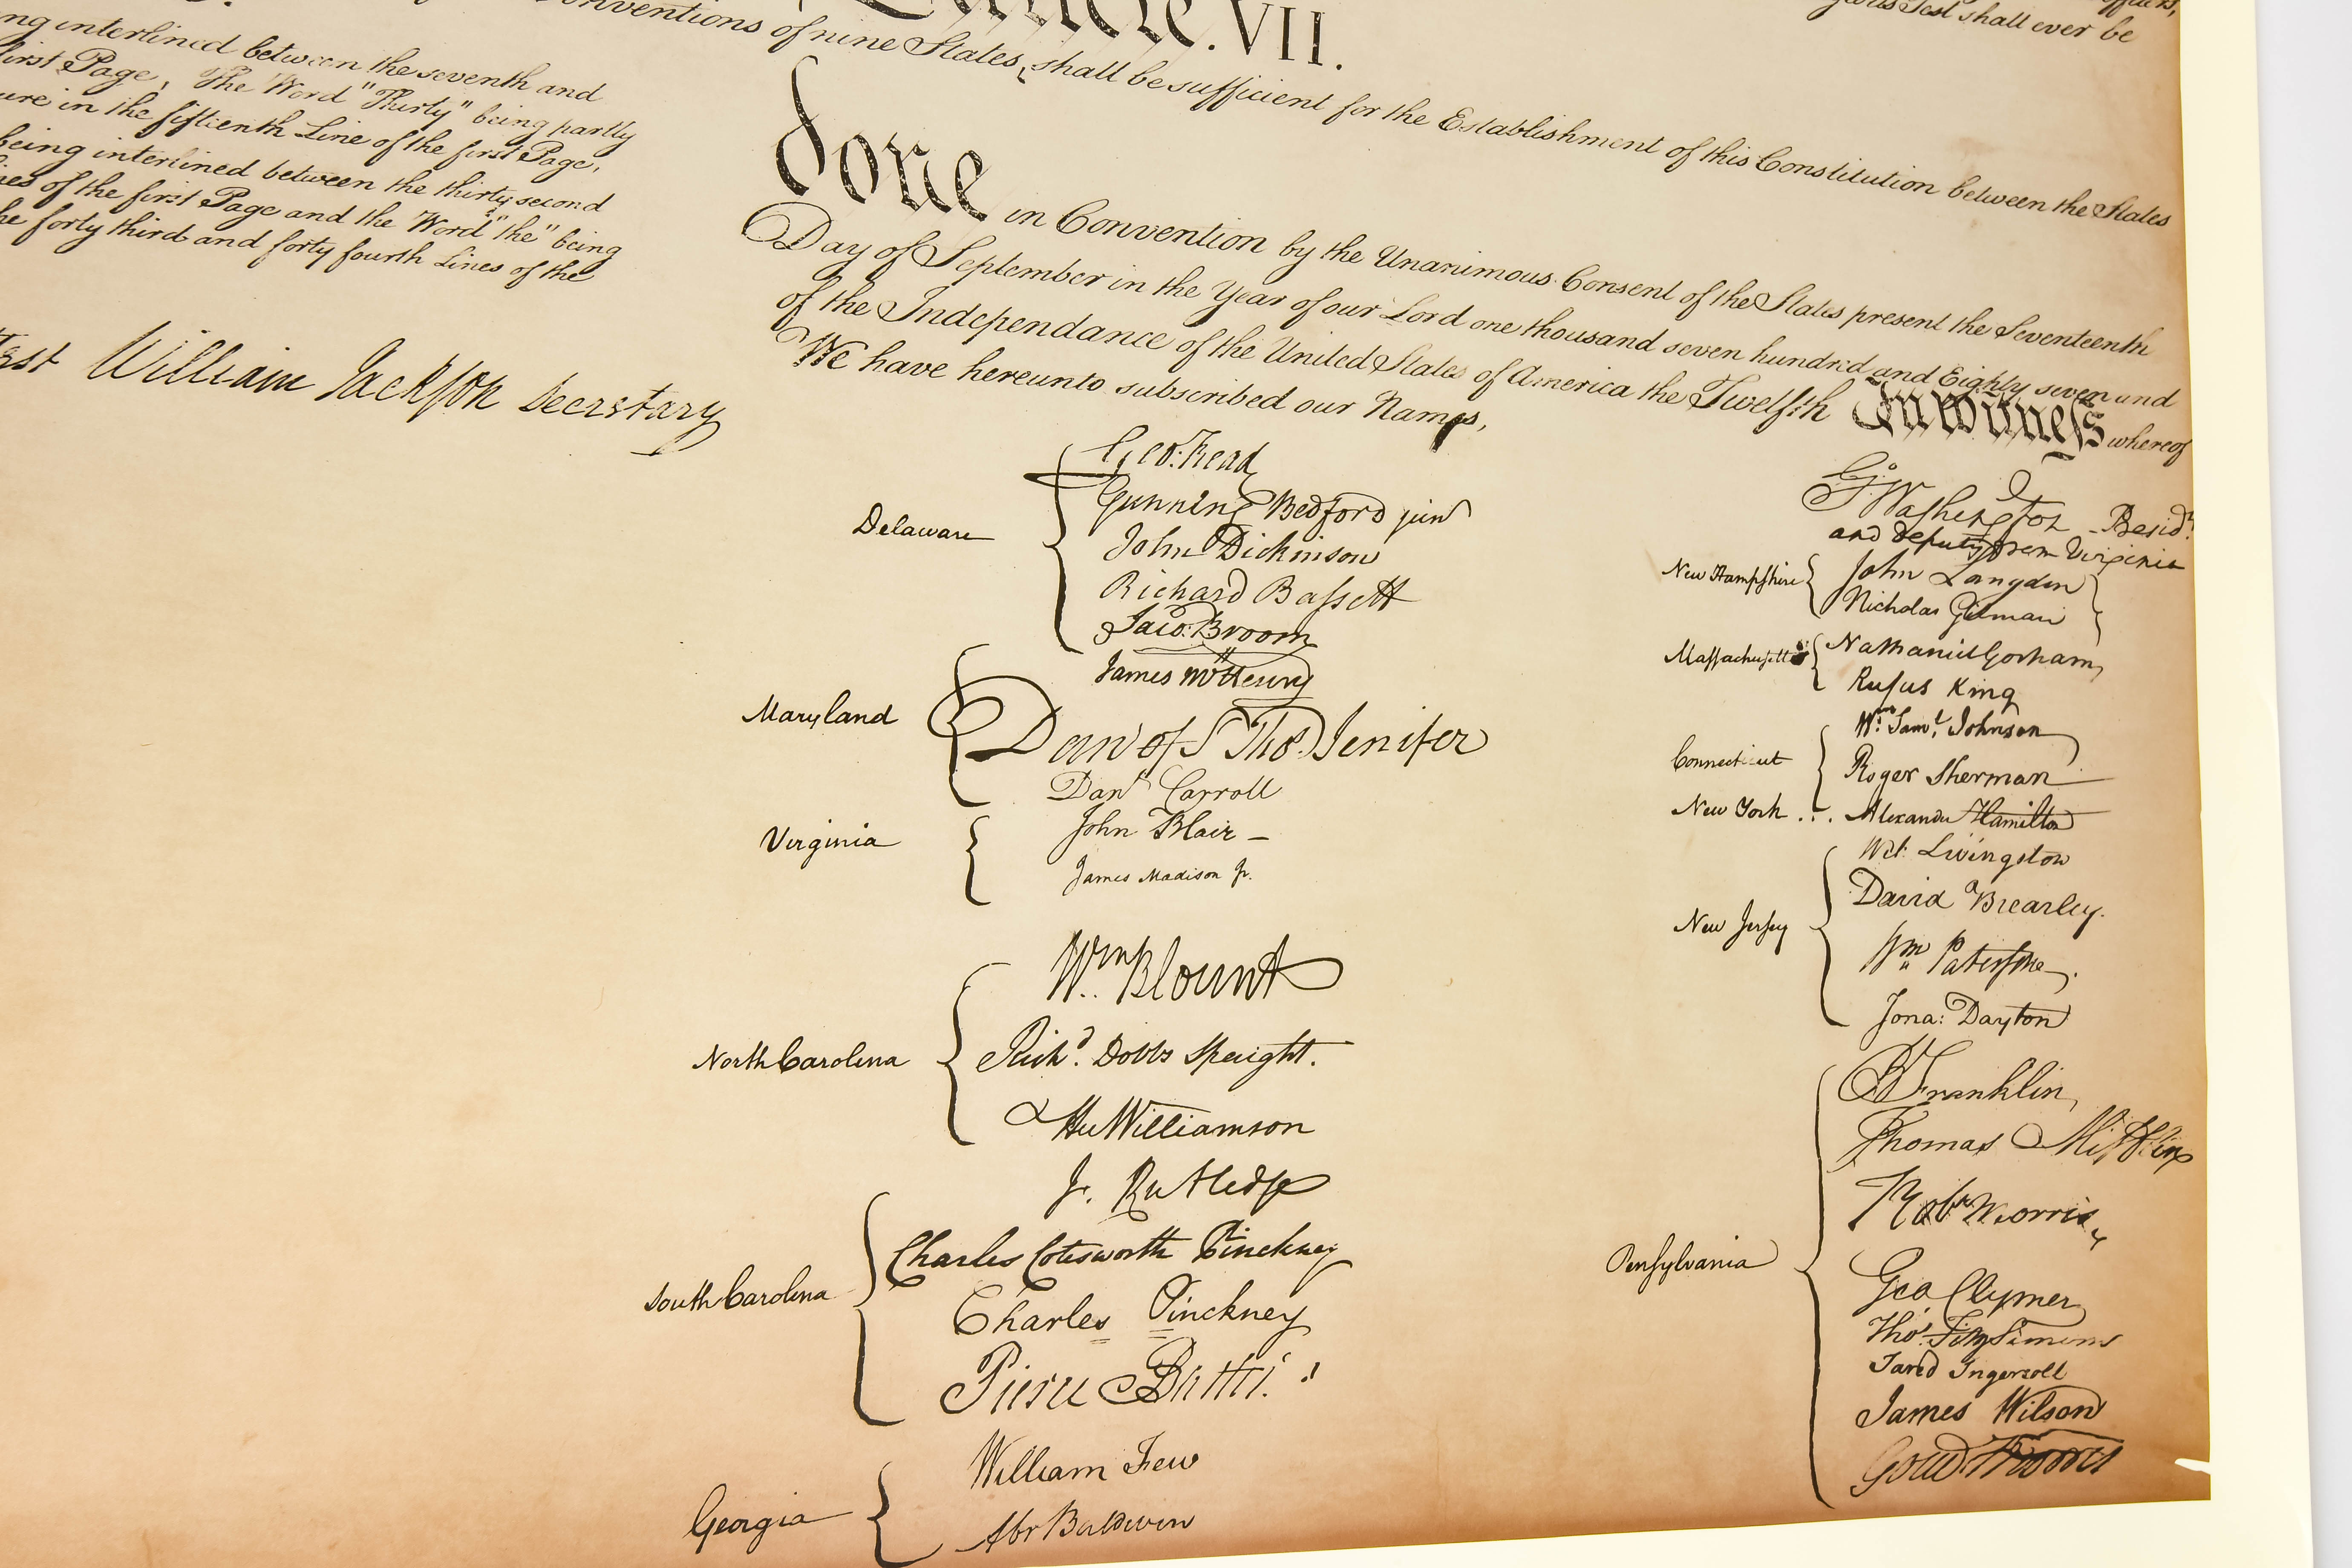 Article. VII.
onventions of nine States, shall be sufficient for the Establishment of this Constitution between the States
gious Test shall ever be
ng interlined between the seventh and
first Page, The Word "Thirty" being partly
ure in the fifteenth Line of the first Page,
being interlined between the thirty second
nes of the first Page and the Word "the" being
he forty third and forty fourth Lines of the
test William Jackson Secretary
done in Convention by the Unanimous Consent of the States present the Seventeenth
Day of September in the Year of our Lord one thousand seven hundred and Eighty seven and
of the Independance of the United States of America the Twelfth In witness whereof
We have hereunto subscribed our Names,
Delaware
Geo: Read
Gunning Bedford jun
John Dickinson
Richard Bassett
Jaco: Broom
Maryland
James McHenry
Dan of St Thos. Jenifer
Danl Carroll
Virginia
John Blair —
James Madison Jr.
North Carolina
Wm Blount
Richd. Dobbs Spaight.
Hu Williamson
South Carolina
J. Rutledge
Charles Cotesworth Pinckney
Charles Pinckney
Pierce Butler.
Georgia
William Few
Abr Baldwin
Go Washington — Presidt.
and deputy from Virginia
New Hampshire
John Langdon
Nicholas Gilman
Massachusetts
Nathaniel Gorham
Rufus King
Connecticut
Wm. Saml. Johnson
Roger Sherman
New York . . . Alexander Hamilton
New Jersey
Wil: Livingston
David Brearley.
Wm Paterson.
Jona: Dayton
Pensylvania
B Franklin
Thomas Mifflin
Robt Morris
Geo Clymer
Thos. FitzSimons
Jared Ingersoll
James Wilson
Gouv Morris